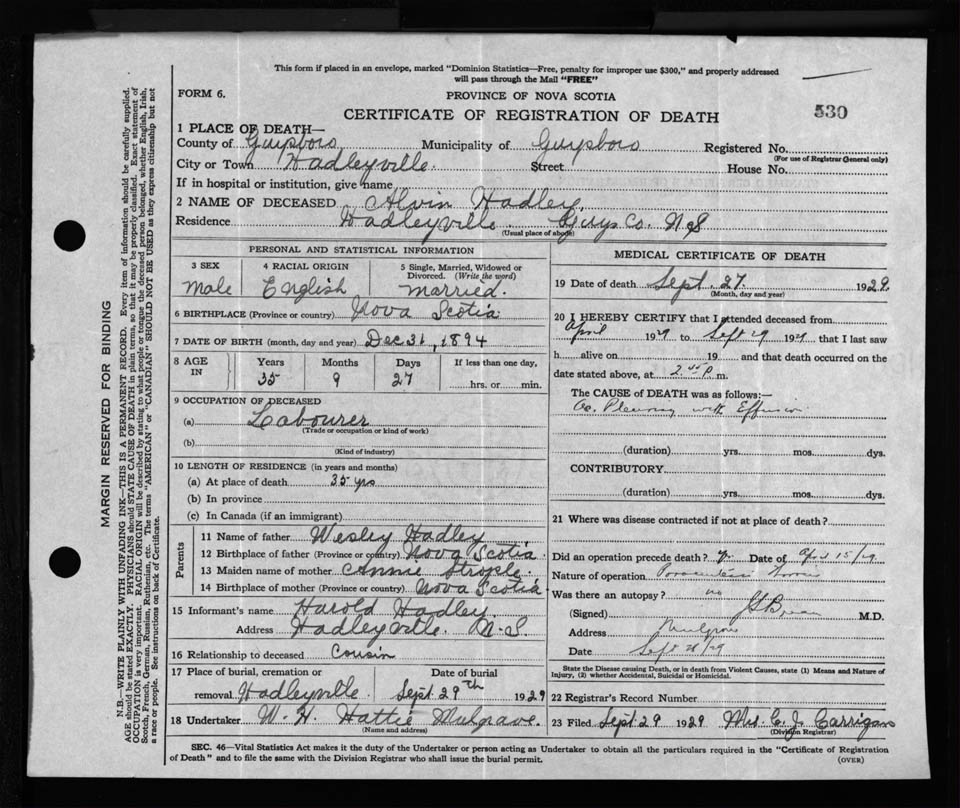 This form if placed in an envelope, marked "Dominion Statistics—Free, penalty for improper use $300," and properly addressed
will pass through the Mail "FREE"
FORM 6.
PROVINCE OF NOVA SCOTIA
530
CERTIFICATE OF REGISTRATION OF DEATH
MARGIN RESERVED FOR BINDING
N.B.—WRITE PLAINLY WITH UNFADING INK—THIS IS A PERMANENT RECORD. Every item of information should be carefully supplied.
AGE should be stated EXACTLY. PHYSICIANS should STATE CAUSE OF DEATH in plain terms, so that it may be properly classified. Exact statement of
OCCUPATION is very important. RACIAL ORIGIN will be described by stating to what people or tongue the deceased person belonged, whether English, Irish,
Scotch, French, German, Russian, Ruthenian, etc. The terms "AMERICAN" or "CANADIAN" SHOULD NOT BE USED as they express citizenship but not
a race or people. See instructions on back of Certificate.
1 PLACE OF DEATH—
County of Guysboro Municipality of Guysboro Registered No.
(For use of Registrar General only)
City or Town Hadleyville Street House No.
If in hospital or institution, give name
2 NAME OF DECEASED Alvin Hadley
Residence Hadleyville Guys Co. N S
(Usual place of abode)
PERSONAL AND STATISTICAL INFORMATION
3 SEX
Male
4 RACIAL ORIGIN
English
5 Single, Married, Widowed or
Divorced. (Write the word)
married.
6 BIRTHPLACE (Province or country) Nova Scotia
7 DATE OF BIRTH (month, day and year) Dec 31, 1894
8 AGE
IN
Years
35
Months
9
Days
27
If less than one day,
hrs. or min.
9 OCCUPATION OF DECEASED
(a) Labourer
(Trade or occupation or kind of work)
(b)
(Kind of industry)
10 LENGTH OF RESIDENCE (in years and months)
(a) At place of death 35 yrs
(b) In province
(c) In Canada (if an immigrant)
Parents
11 Name of father Wesley Hadley
12 Birthplace of father (Province or country) Nova Scotia
13 Maiden name of mother Annie Strople
14 Birthplace of mother (Province or country) Nova Scotia
15 Informant's name Harold Hadley
Address Hadleyville N.S.
16 Relationship to deceased Cousin
17 Place of burial, cremation or
removal Hadleyville
Date of burial
Sept. 29th 1929
18 Undertaker W. H. Hattie Mulgrave
(Name and address)
MEDICAL CERTIFICATE OF DEATH
19 Date of death Sept. 27. 1929.
(Month, day and year)
20 I HEREBY CERTIFY that I attended deceased from
April 1929 to Sept 29 1929 that I last saw
h alive on 19 and that death occurred on
date stated above, at P. m.
The CAUSE OF DEATH was as follows:—
Ac. Pleurisy with Effusion
(duration) yrs. mos. dys.
CONTRIBUTORY
(duration) yrs. mos. dys.
21 Where was disease contracted if not at place of death?
Did an operation precede death? Date of April 15/29.
Nature of operation
Was there an autopsy? no
(Signed) M.D.
Address Mulgrave
Date Sept 28/29
State the Disease causing Death, or in death from Violent Causes, state (1) Means and Nature of
Injury, (2) whether Accidental, Suicidal or Homicidal.
22 Registrar's Record Number
23 Filed Sept. 29 1929 Mrs. E. J. Carrigan
(Division Registrar)
SEC. 46—Vital Statistics Act makes it the duty of the Undertaker or person acting as Undertaker to obtain all the particulars required in the "Certificate of Registration
of Death" and to file the same with the Division Registrar who shall issue the burial permit.
(OVER)